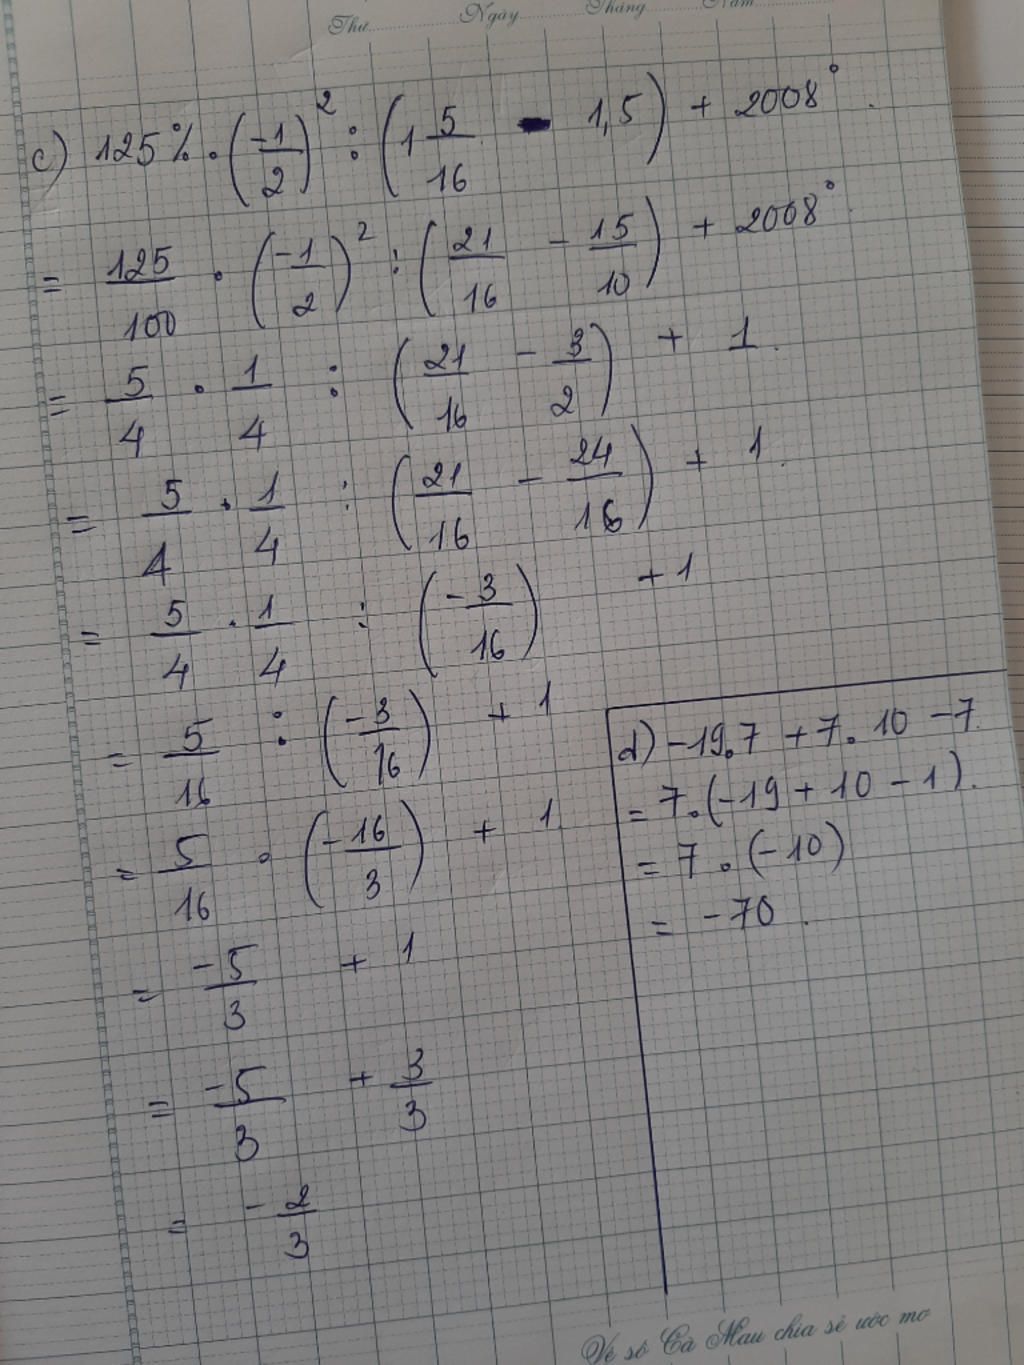 Thứ Ngày Tháng Năm
c) 125% . (-1/2)² : (1 5/16 - 1,5) + 2008⁰.
= 125/100 . (-1/2)² : (21/16 - 15/10) + 2008⁰.
= 5/4 . 1/4 : (21/16 - 3/2) + 1.
= 5/4 . 1/4 : (21/16 - 24/16) + 1.
= 5/4 . 1/4 : (-3/16) + 1
= 5/16 : (-3/16) + 1
= 5/16 . (-16/3) + 1
= -5/3 + 1
= -5/3 + 3/3
= -2/3
d) -19.7 + 7. 10 -7
= 7.(-19 + 10 - 1).
= 7 . (-10)
= -70.
Vé số Cà Mau chia sẻ ước mơ